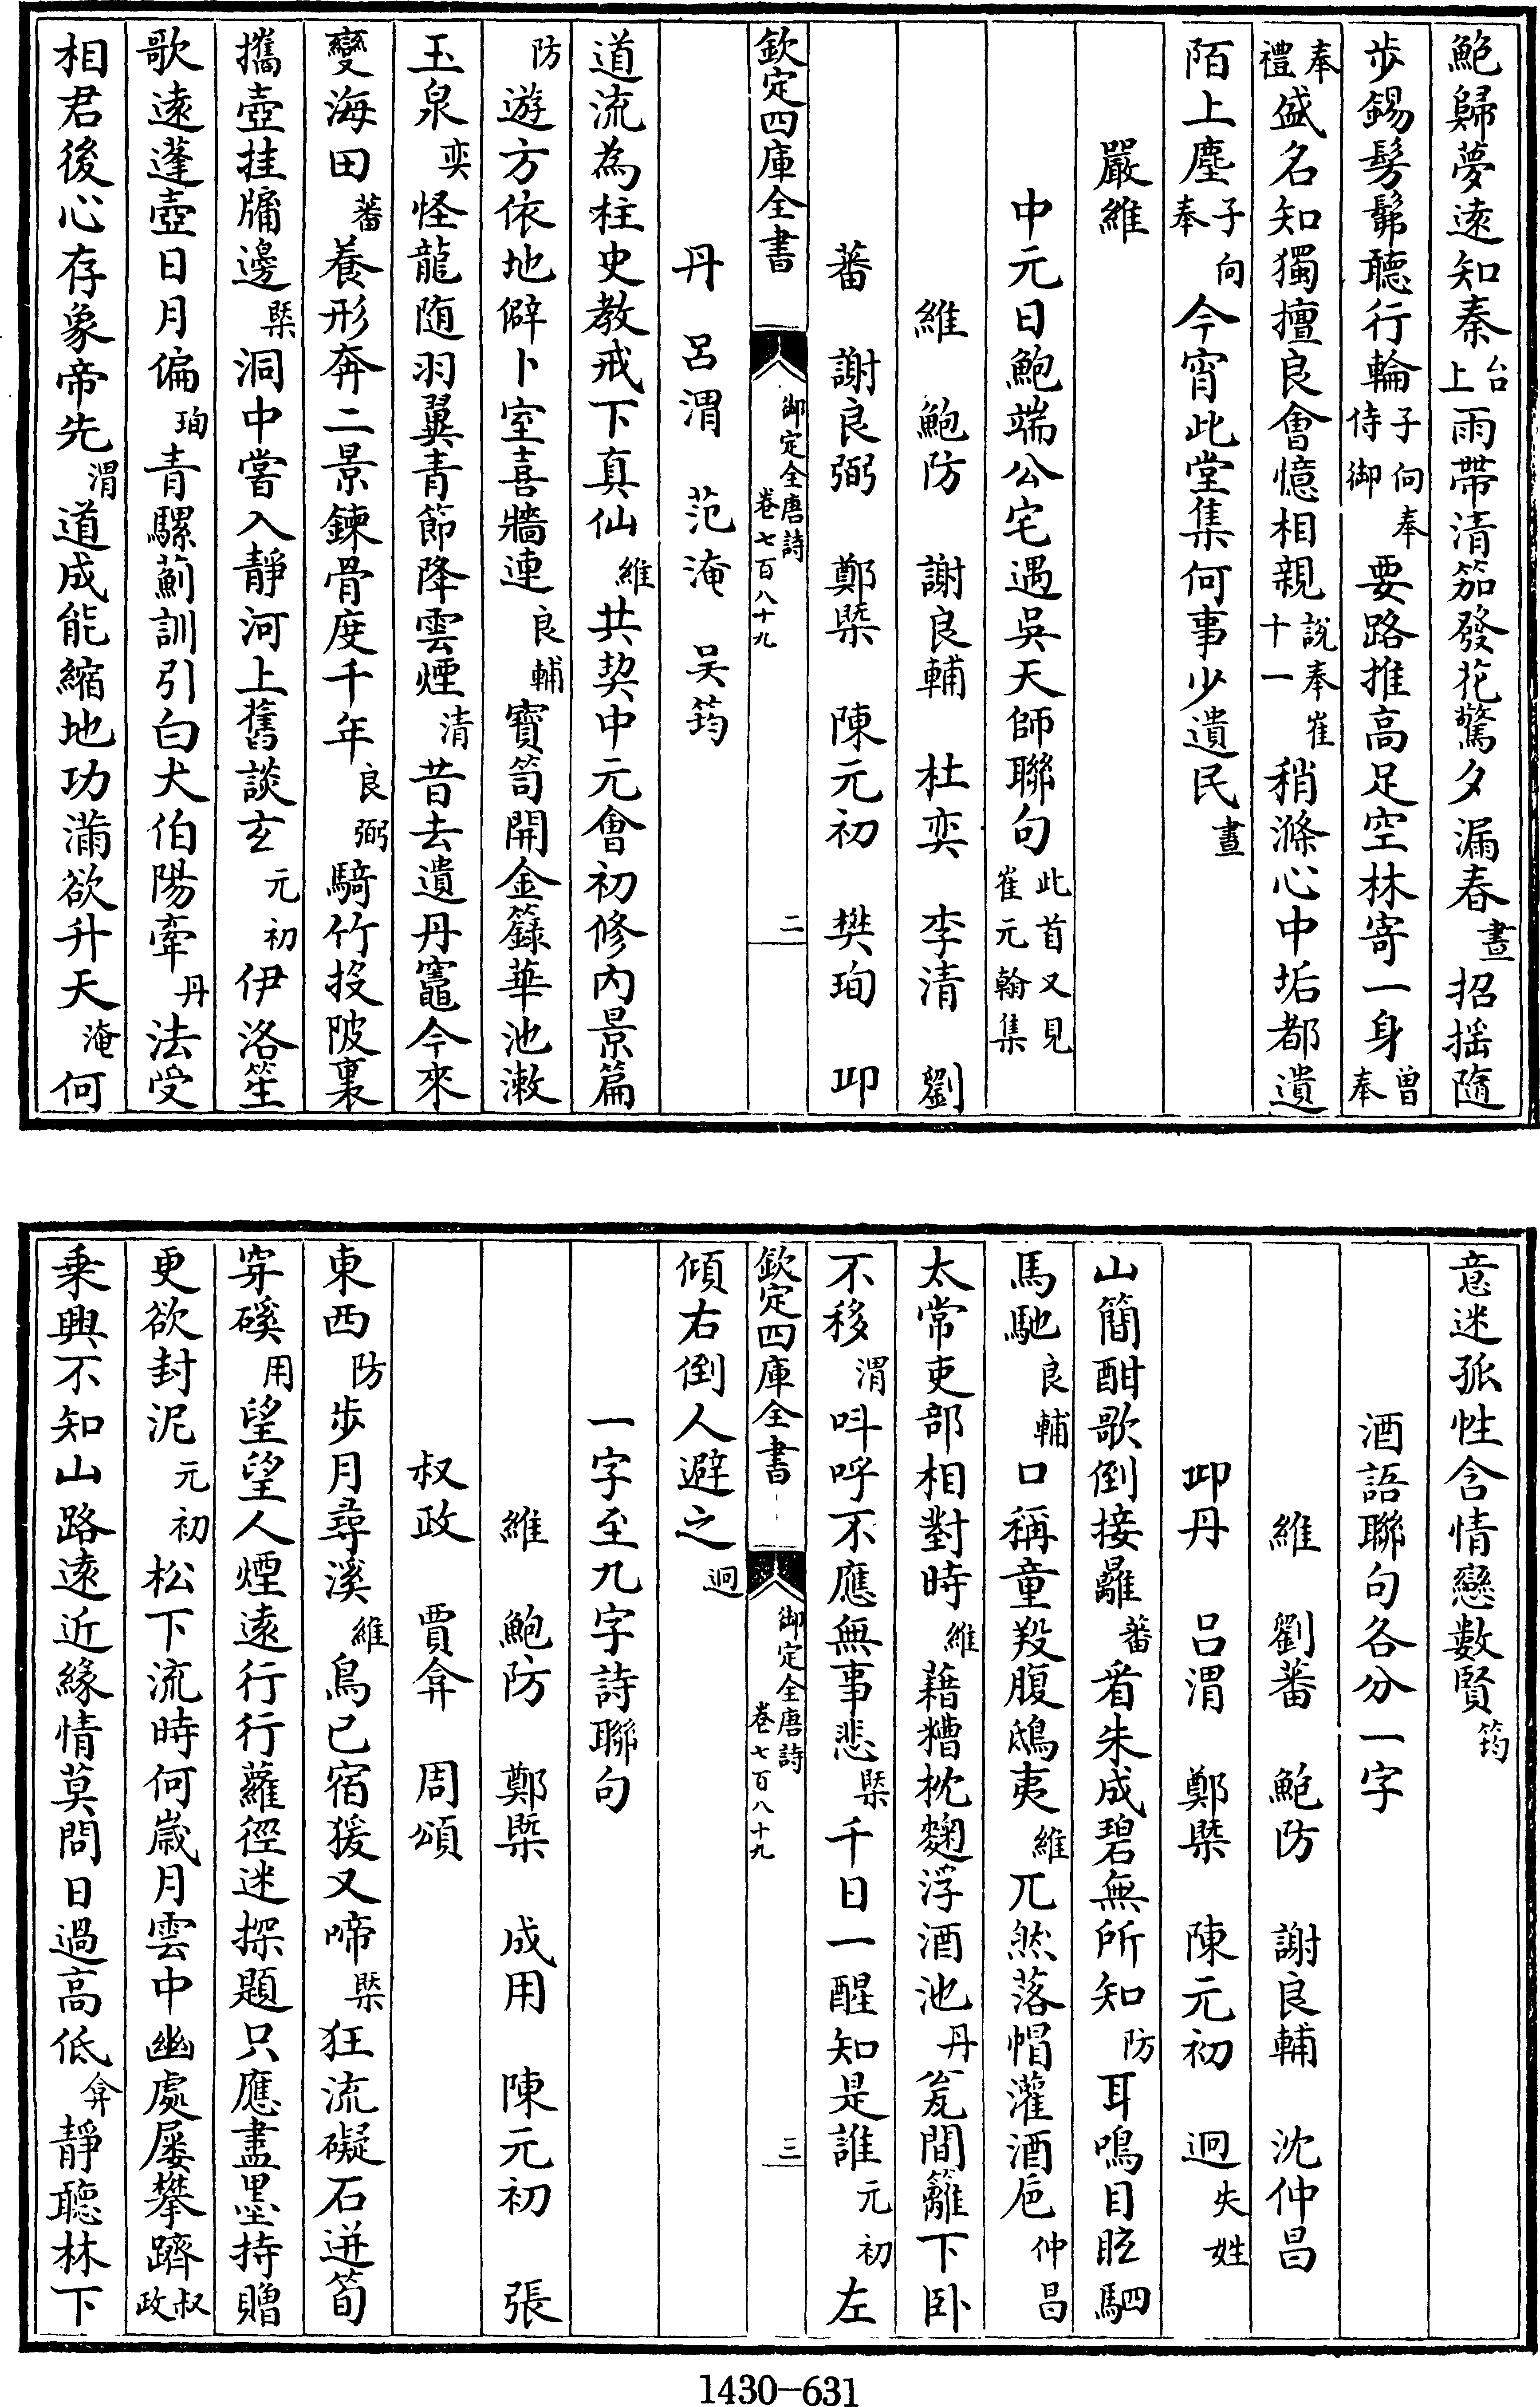 鮑歸夢逺知秦台上雨帶清笳發花驚夕漏春晝招揺隨
歩錫髣髴聽行輪子向侍御奉要路推高足空林寄一身曽奉
奉禮盛名知獨擅良會憶相親說奉崔十一稍滌心中垢都遺
陌上塵子向奉今宵此堂集何事少遺民晝
嚴維
中元日鮑端公宅遇吳天師聯句此首又見崔元翰集
維　鮑防　謝良輔　杜奕　李清　劉
蕃　謝良弼　鄭槩　陳元初　樊珣　丘
欽定四庫全書　御定全唐詩卷七百八十九　二
丹　呂渭　范淹　吳筠
道流為柱史教戒下真仙維共契中元會初修内景篇
防遊方依地僻卜室喜牆連良輔寶笥開金籙華池漱
玉泉奕怪龍随羽翼青節降雲煙清昔去遺丹竈今來
變海田蕃養形奔二景鍊骨度千年良弼騎竹投陂裏
攜壺挂牗邊槩洞中嘗入靜河上舊談玄元初伊洛笙
歌逺蓬壺日月偏珣青騾薊訓引白犬伯陽牽丹法受
相君後心存象帝先渭道成能縮地功滿欲升天淹何
意迷孤性含情戀數賢筠
酒語聯句各分一字
維　劉蕃　鮑防　謝良輔　沈仲昌
丘丹　吕渭　鄭槩　陳元初　迥失姓
山簡酣歌倒接䍦蕃看朱成碧無所知防耳鳴目眩駟
馬馳良輔口稱童羖腹鴟夷維兀然落帽灌酒卮仲昌
太常吏部相對時維藉糟枕麴浮酒池丹瓮間籬下卧
不移渭叫呼不應無事悲槩千日一醒知是誰元初左
欽定四庫全書　御定全唐詩卷七百八十九　三
傾右倒人避之迥
一字至九字詩聯句
維　鮑防　鄭槩　成用　陳元初　張
叔政　賈弇　周頌
東西防歩月尋溪維鳥已宿猨又啼槩狂流礙石迸筍
穿磎用望望人煙逺行行蘿徑迷探題只應盡墨持贈
更欲封泥元初松下流時何歲月雲中幽處屡攀躋叔政
乘興不知山路逺近緣情莫問日過高低弇靜聽林下
1430-631